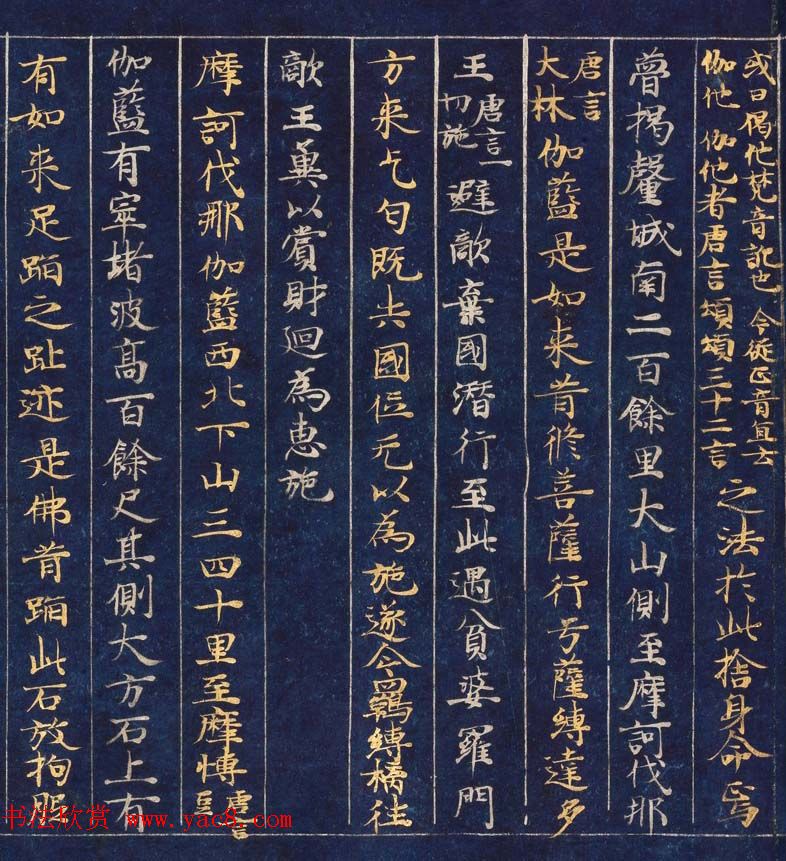 或曰偈他梵音訛也 今從正音宜云
伽他 伽他者唐言頌頌三十二言
之法扵此捨身命焉
瞢揭釐城南二百餘里大山側至摩訶伐那
唐言
大林
伽藍是如来昔修菩薩行号薩縛達多
王
唐言一
切施
避敵棄國潛行至此遇貧婆羅門
方来乞匂既失國位无以為施遂令羈縛擒往
敵王冀以賞財迴為惠施
摩訶伐那伽藍西北下山三四十里至摩愽
唐言
豆
伽藍有窣堵波高百餘尺其側大方石上有
有如来足蹈之趾迹是佛昔蹈此石放拘胝
书法欣赏 www.yac8.com